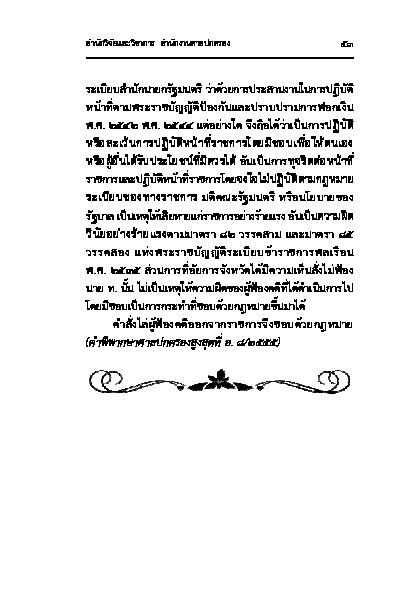 สำนักวิจัยและวิชาการ สำนักงานศาลปกครอง ๕๓
ระเบียบสำนักนายกรัฐมนตรี ว่าด้วยการประสานงานในการปฏิบัติ
หน้าที่ตามพระราชบัญญัติป้องกันและปราบปรามการฟอกเงิน
พ.ศ. ๒๕๔๒ พ.ศ. ๒๕๔๔ แต่อย่างใด จึงถือได้ว่าเป็นการปฏิบัติ
หรือละเว้นการปฏิบัติหน้าที่ราชการโดยมิชอบเพื่อให้ตนเอง
หรือผู้อื่นได้รับประโยชน์ที่มิควรได้ อันเป็นการทุจริตต่อหน้าที่
ราชการและปฏิบัติหน้าที่ราชการโดยจงใจไม่ปฏิบัติตามกฎหมาย
ระเบียบของทางราชการ มติคณะรัฐมนตรี หรือนโยบายของ
รัฐบาล เป็นเหตุให้เสียหายแก่ราชการอย่างร้ายแรง อันเป็นความผิด
วินัยอย่างร้ายแรงตามมาตรา ๘๒ วรรคสาม และมาตรา ๘๕
วรรคสอง แห่งพระราชบัญญัติระเบียบข้าราชการพลเรือน
พ.ศ. ๒๕๓๕ ส่วนการที่อัยการจังหวัดได้มีความเห็นสั่งไม่ฟ้อง
นาย ท. นั้น ไม่เป็นเหตุให้ความผิดของผู้ฟ้องคดีที่ได้ดำเนินการไป
โดยมิชอบเป็นการกระทำที่ชอบด้วยกฎหมายขึ้นมาได้
คำสั่งไล่ผู้ฟ้องคดีออกจากราชการจึงชอบด้วยกฎหมาย
(คำพิพากษาศาลปกครองสูงสุดที่ อ. ๘/๒๕๕๕)